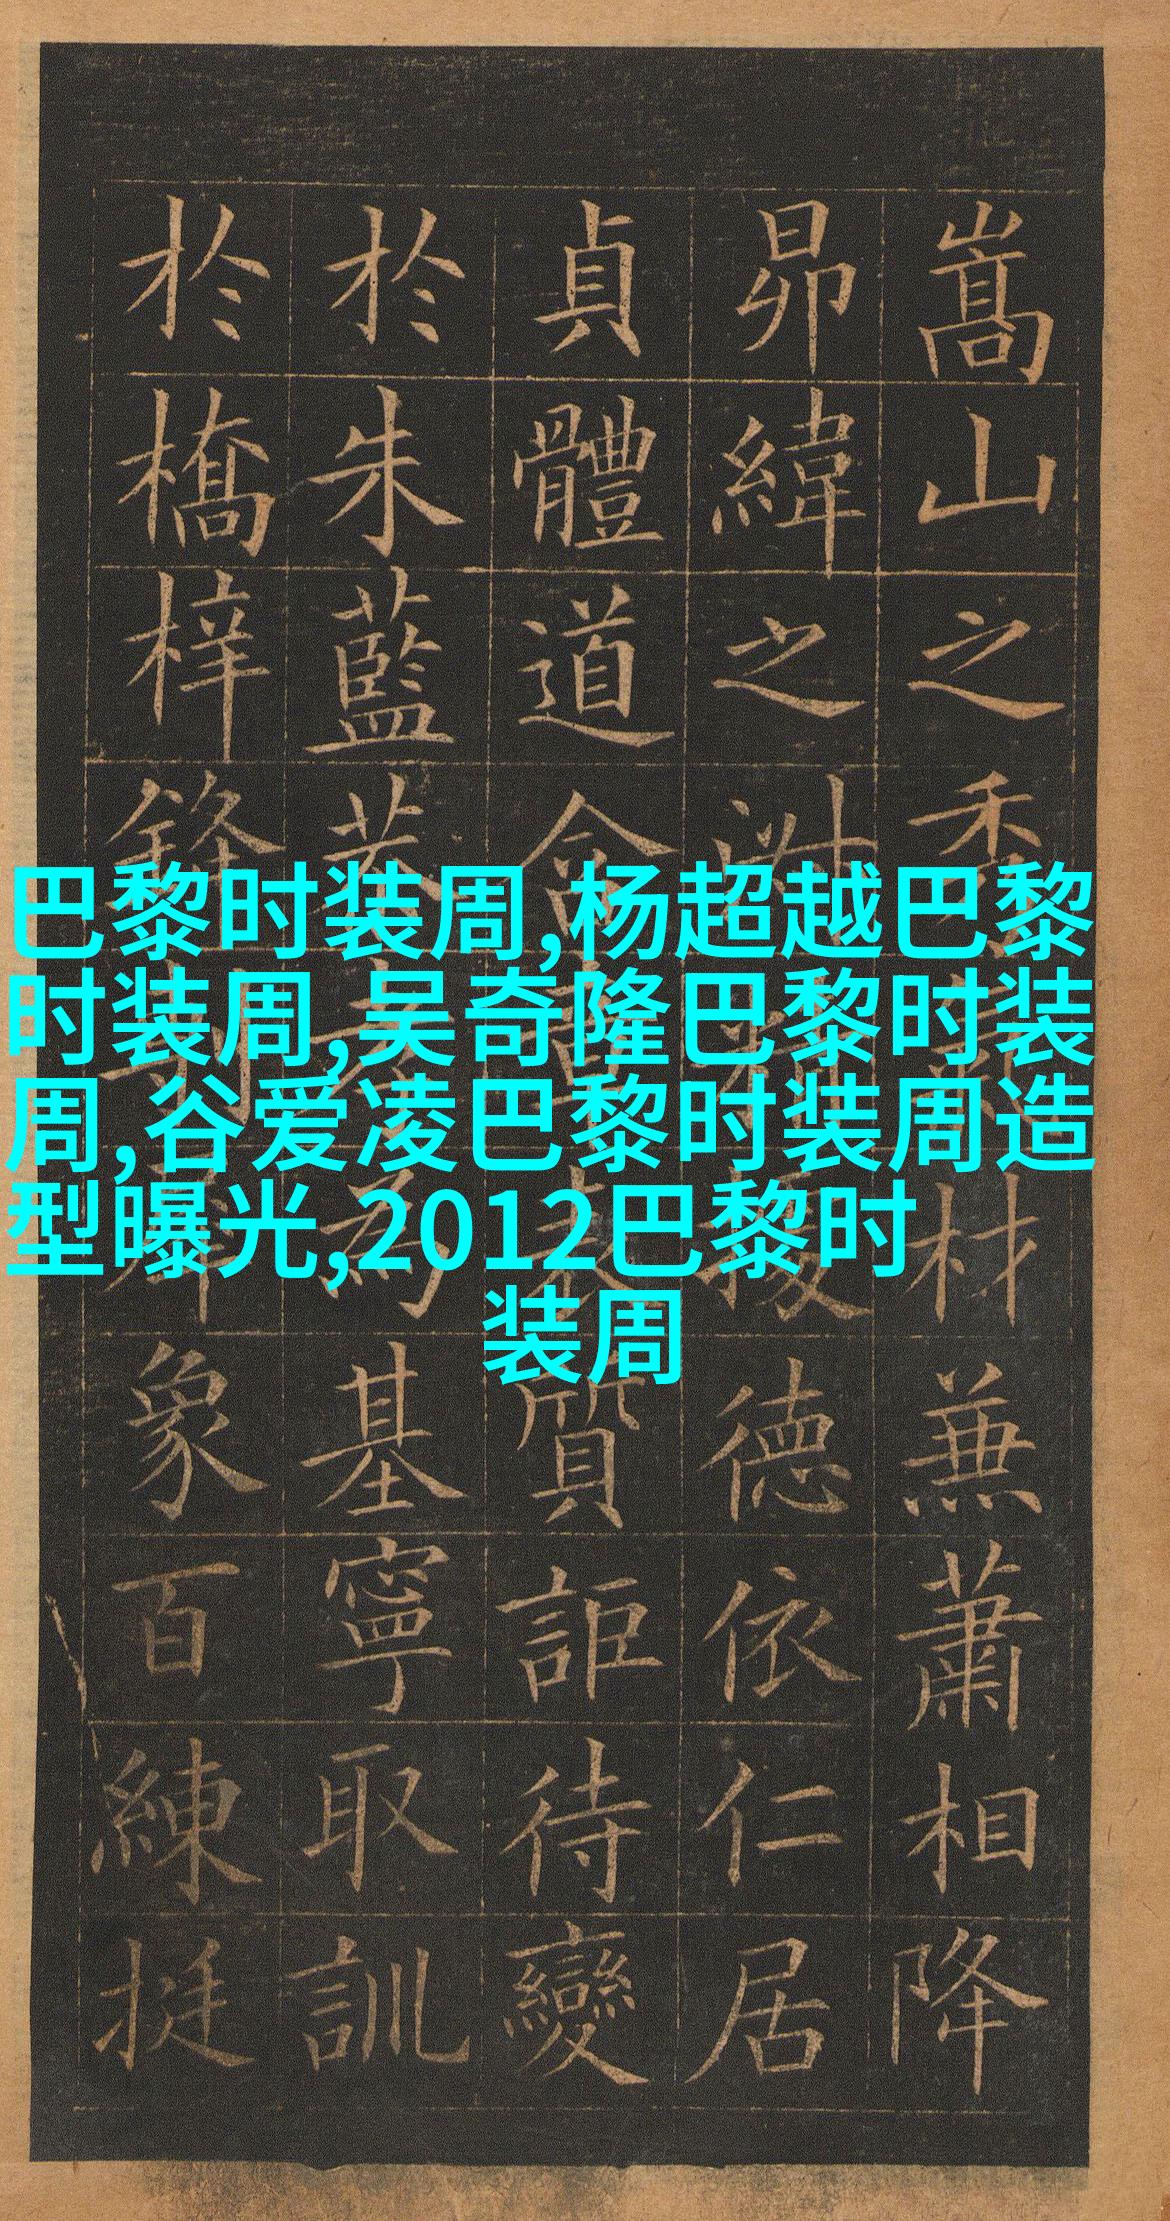 嵩山之秀材兼蕭相降
昴緯之德依仁居
貞體道含質詎待變
於朱藍基寧取訓
於橋梓鋒象百練挺
巴黎时装周,杨超越巴黎
时装周,吴奇隆巴黎时装
周,谷爱凌巴黎时装周造
型曝光,2012巴黎时
装周